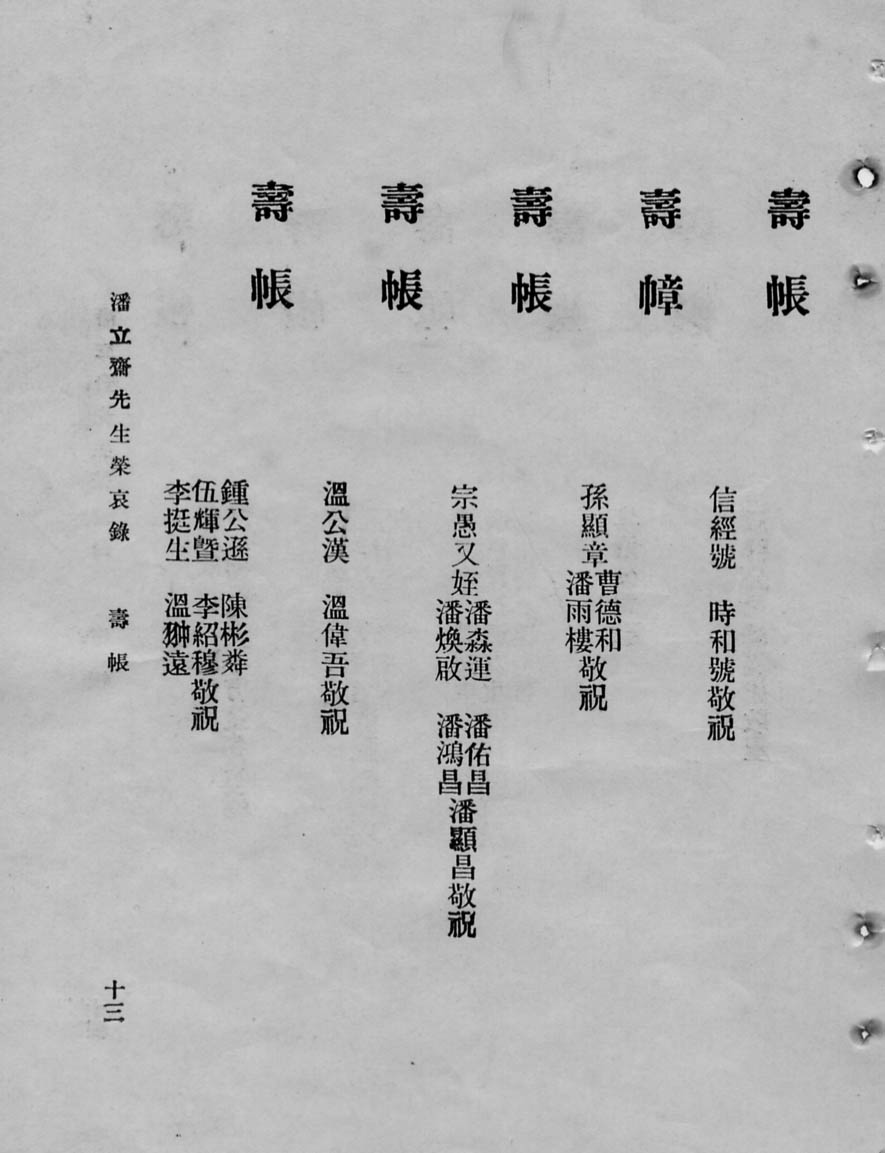 壽帳
信經號　時和號敬祝
壽幛
孫顯章
曹德和
潘雨樓敬祝
壽帳
宗愚又姪
潘森運　潘佑昌
潘煥啟　潘鴻昌
潘顯昌敬祝
壽帳
溫公漢　溫偉吾敬祝
壽帳
鍾公遜　陳彬粦
伍輝曁　李紹穆敬祝
李挺生　溫翀遠
潘立齋先生榮哀錄　壽帳
十三